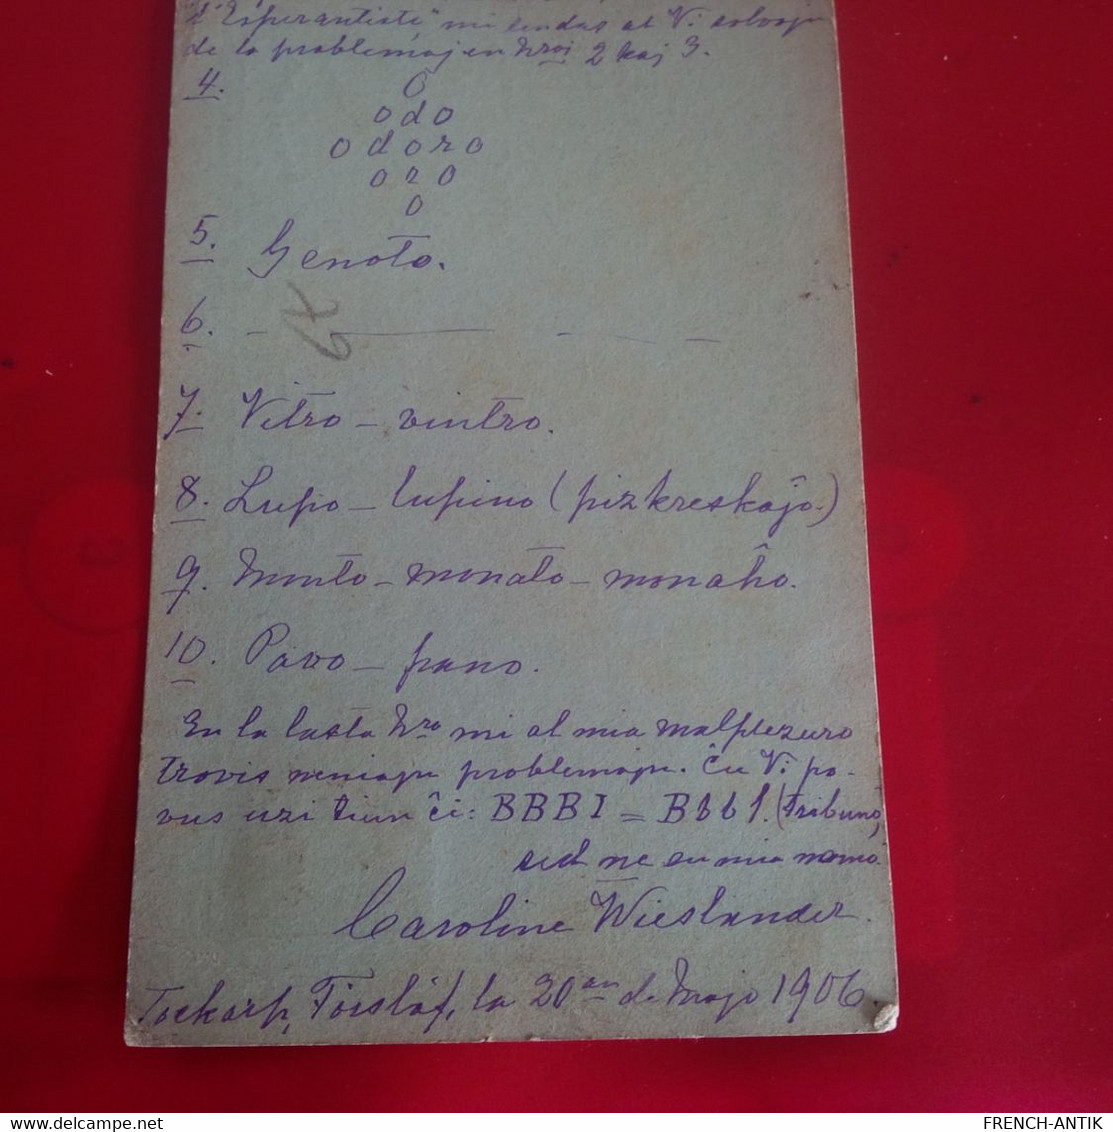 "Esperantiste" mi sendas al Vi solvojn
de la problemoj en Nroj 2 kaj 3.
4. o
o d o
o d o r o
o r o
o
5. Genoto.
6. - — - —
67
7. Vitro - vintro.
8. Lupo - lupino (pizkreskaĵo.)
9. Monto - monato - monaĥo.
10. Pavo - pano.
En la lasta Nro mi al mia malplezuro
trovis neniajn problemojn. Ĉu Vi po-
vus uzi tiun ĉi: BBBI = Bbbl. (Tribuno,
sed ne en mia nomo.
Caroline Wieslander.
Tockarp, Förslöf, la 20an de Majo 1906.
FRENCH-ANTIK